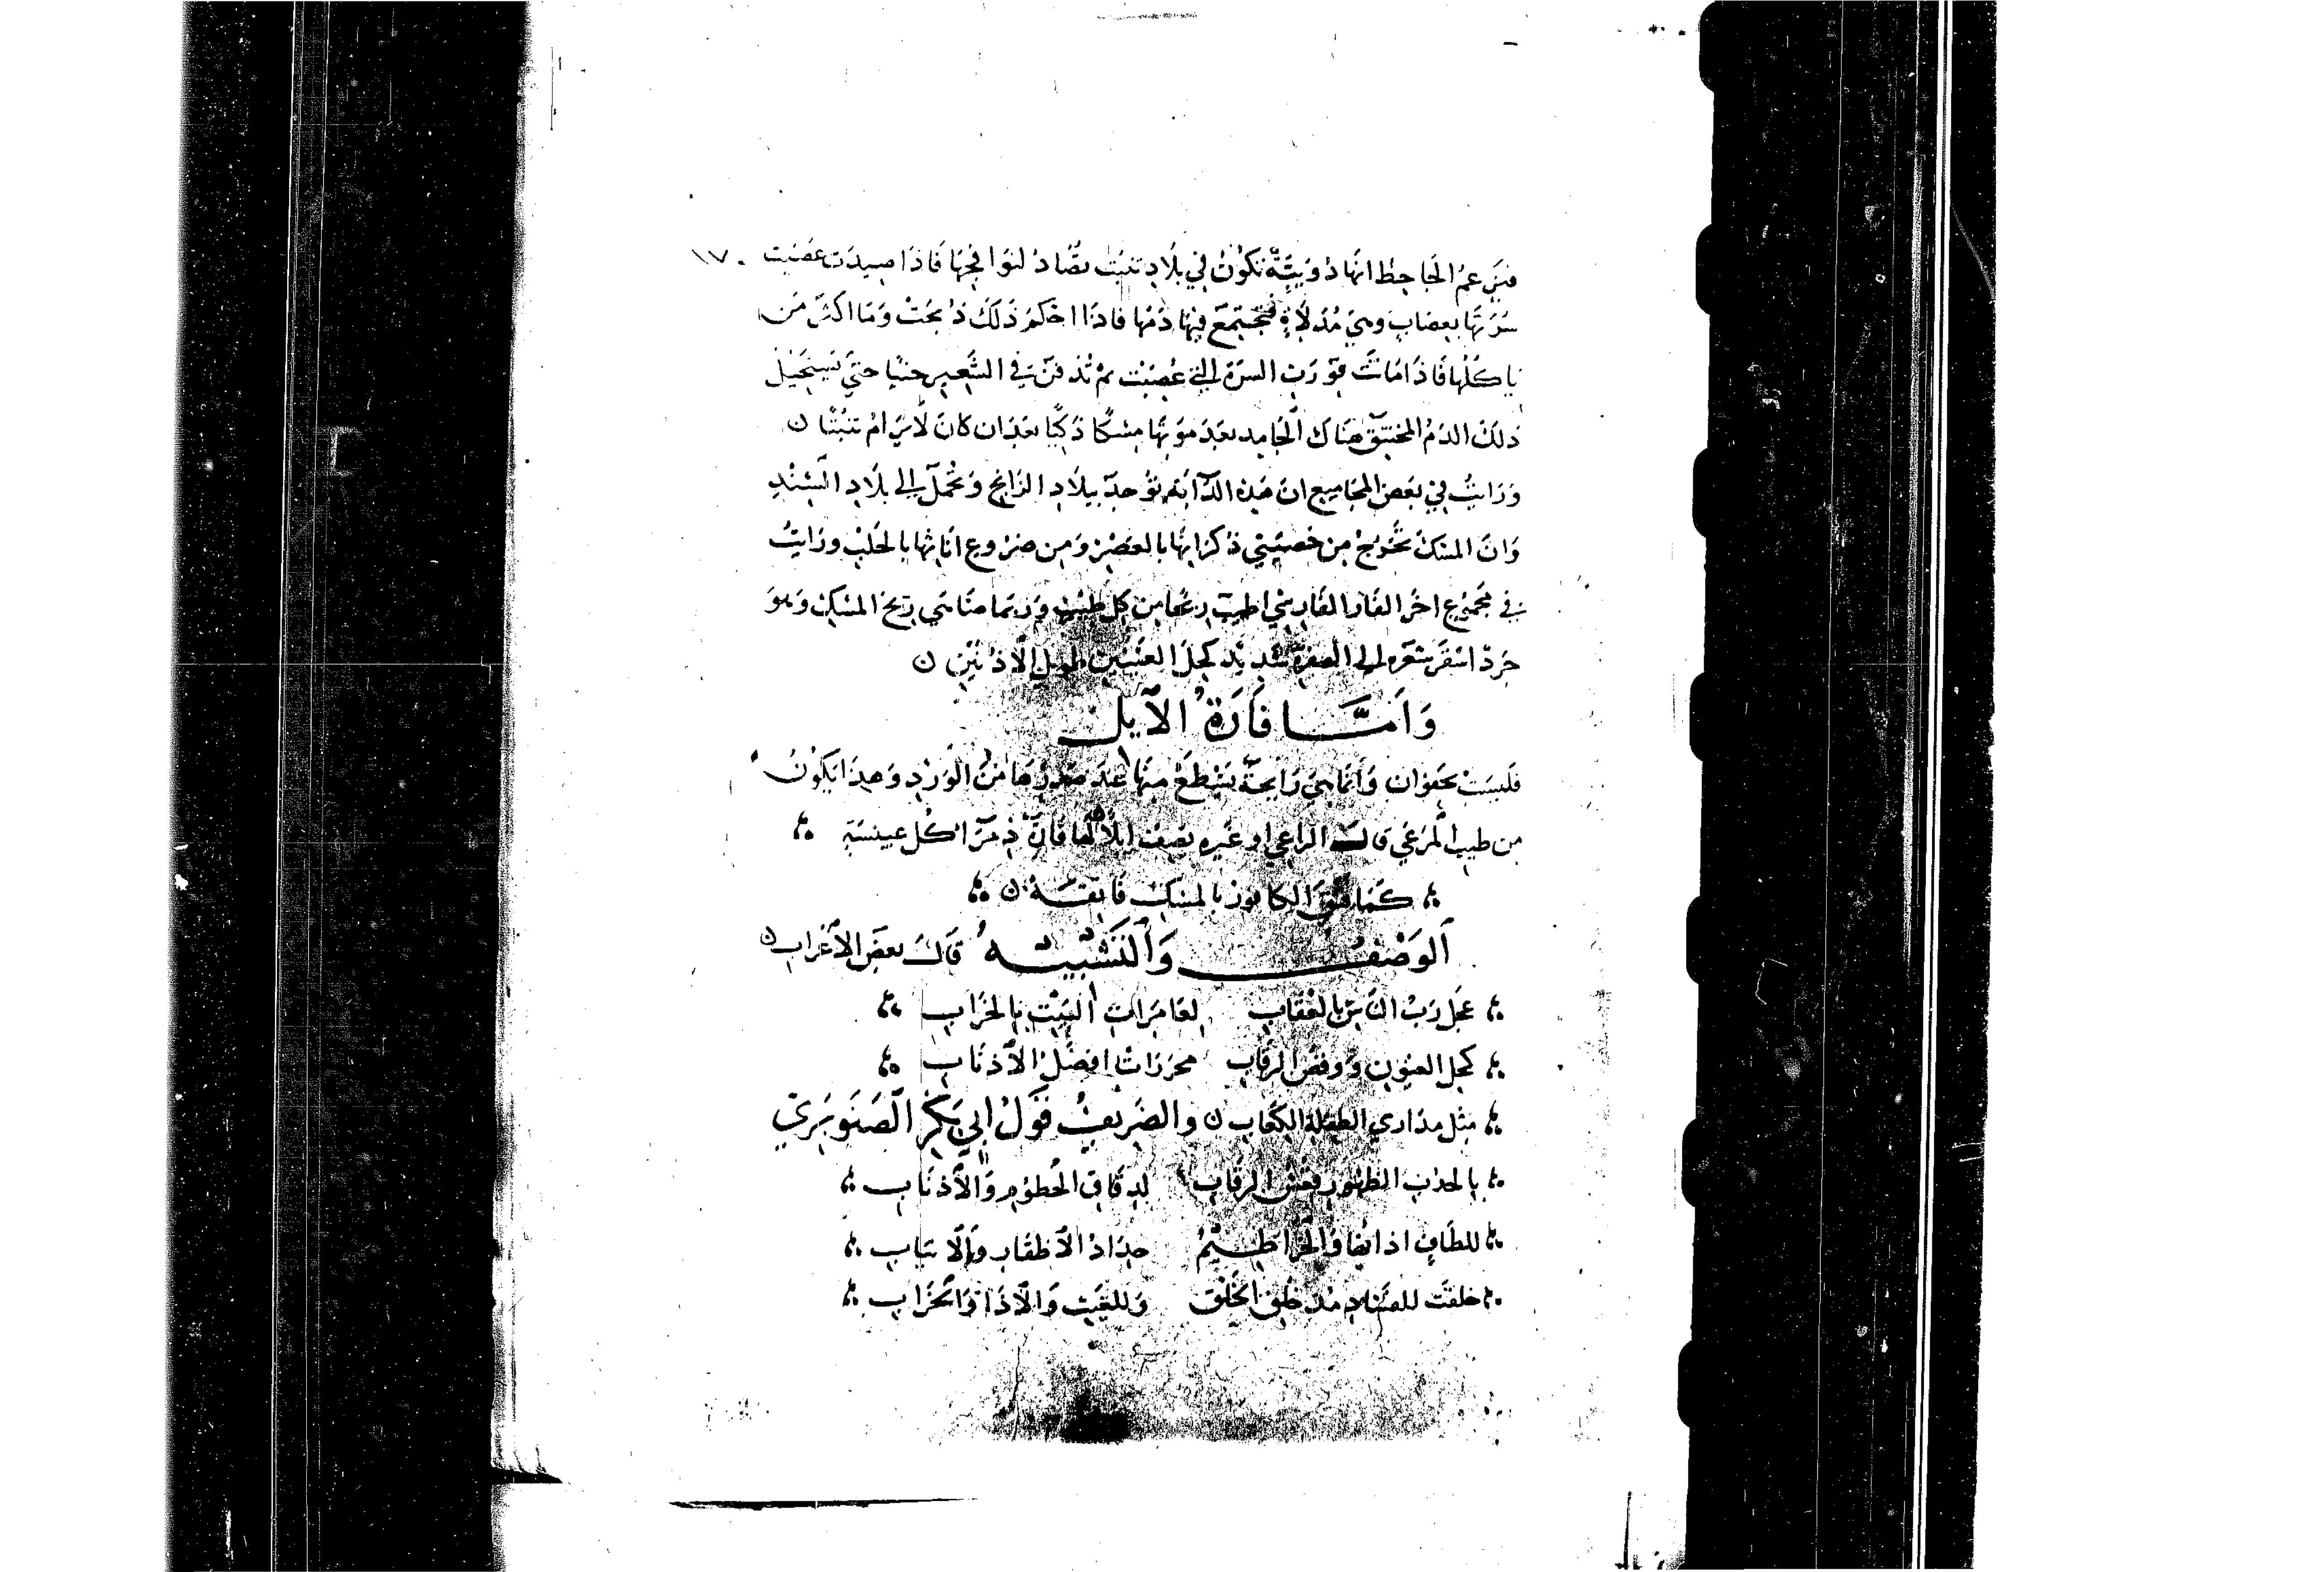 فيزعم الجاحظ انها دويبة تكون في بلاد تبت تصاد لنوافجها فاذا صيدت عصبت ١٧٠
سرتها بعصاب وهي مدلاة فيجتمع فيها دمها فاذا احكم ذلك ذبحت وما اكثر من
ياكلها فاذا ماتت قورت السرة التي عصبت ثم تدفن في الشعير حينا حتى يستحيل
ذلك الدم المختنق هناك الجامد بعد موتها مسكا ذكيا بعد ان كان لا يرام نتنا ن
ورايت في بعض المجاميع ان هذه الدابة توجد ببلاد الزابج وتحمل الى بلاد السند
وان المسك يخرج من خصيتي ذكرانها بالعصر ومن ضروع اناثها بالحلب ورايت
في مجموع اخر الفار الفارسي اطيب ريحا من كل طيب وربما ضاهي ريح المسك وهو
جرذ اشقر شعره الى الصفرة شديد كحل العينين طويل الاذنين ن
وَاَمَّا فَارَةُ الاٰبل
فليست بحيوان وانما هي رايحة يسطع منها عند صدورها من الورد وهذا يكون
من طيب المرعى قال الراعي او غيره يصف ابلا لها فارة ذفراء كل عشية
كما فتق الكافور بالمسك فاتقه ن
الوصف والتشبيه قال بعض الاعراب ن
عجل رب الناس بالعقاب لعامرات البيت بالخراب
كحل العيون وقص الرقاب مجررات افضل الاذناب
مثل مداري الطفلة الكعاب ن والضريف قول ابي بكر الصنوبري
يا لحدب الظهور قعس الرقاب لدقاق الخطوم والاذناب
للطاف اذانها والخراطيم حداد الاظفار والانياب
خلقت للفساد مذ خلق الخلق وللعيث والاذا والخراب